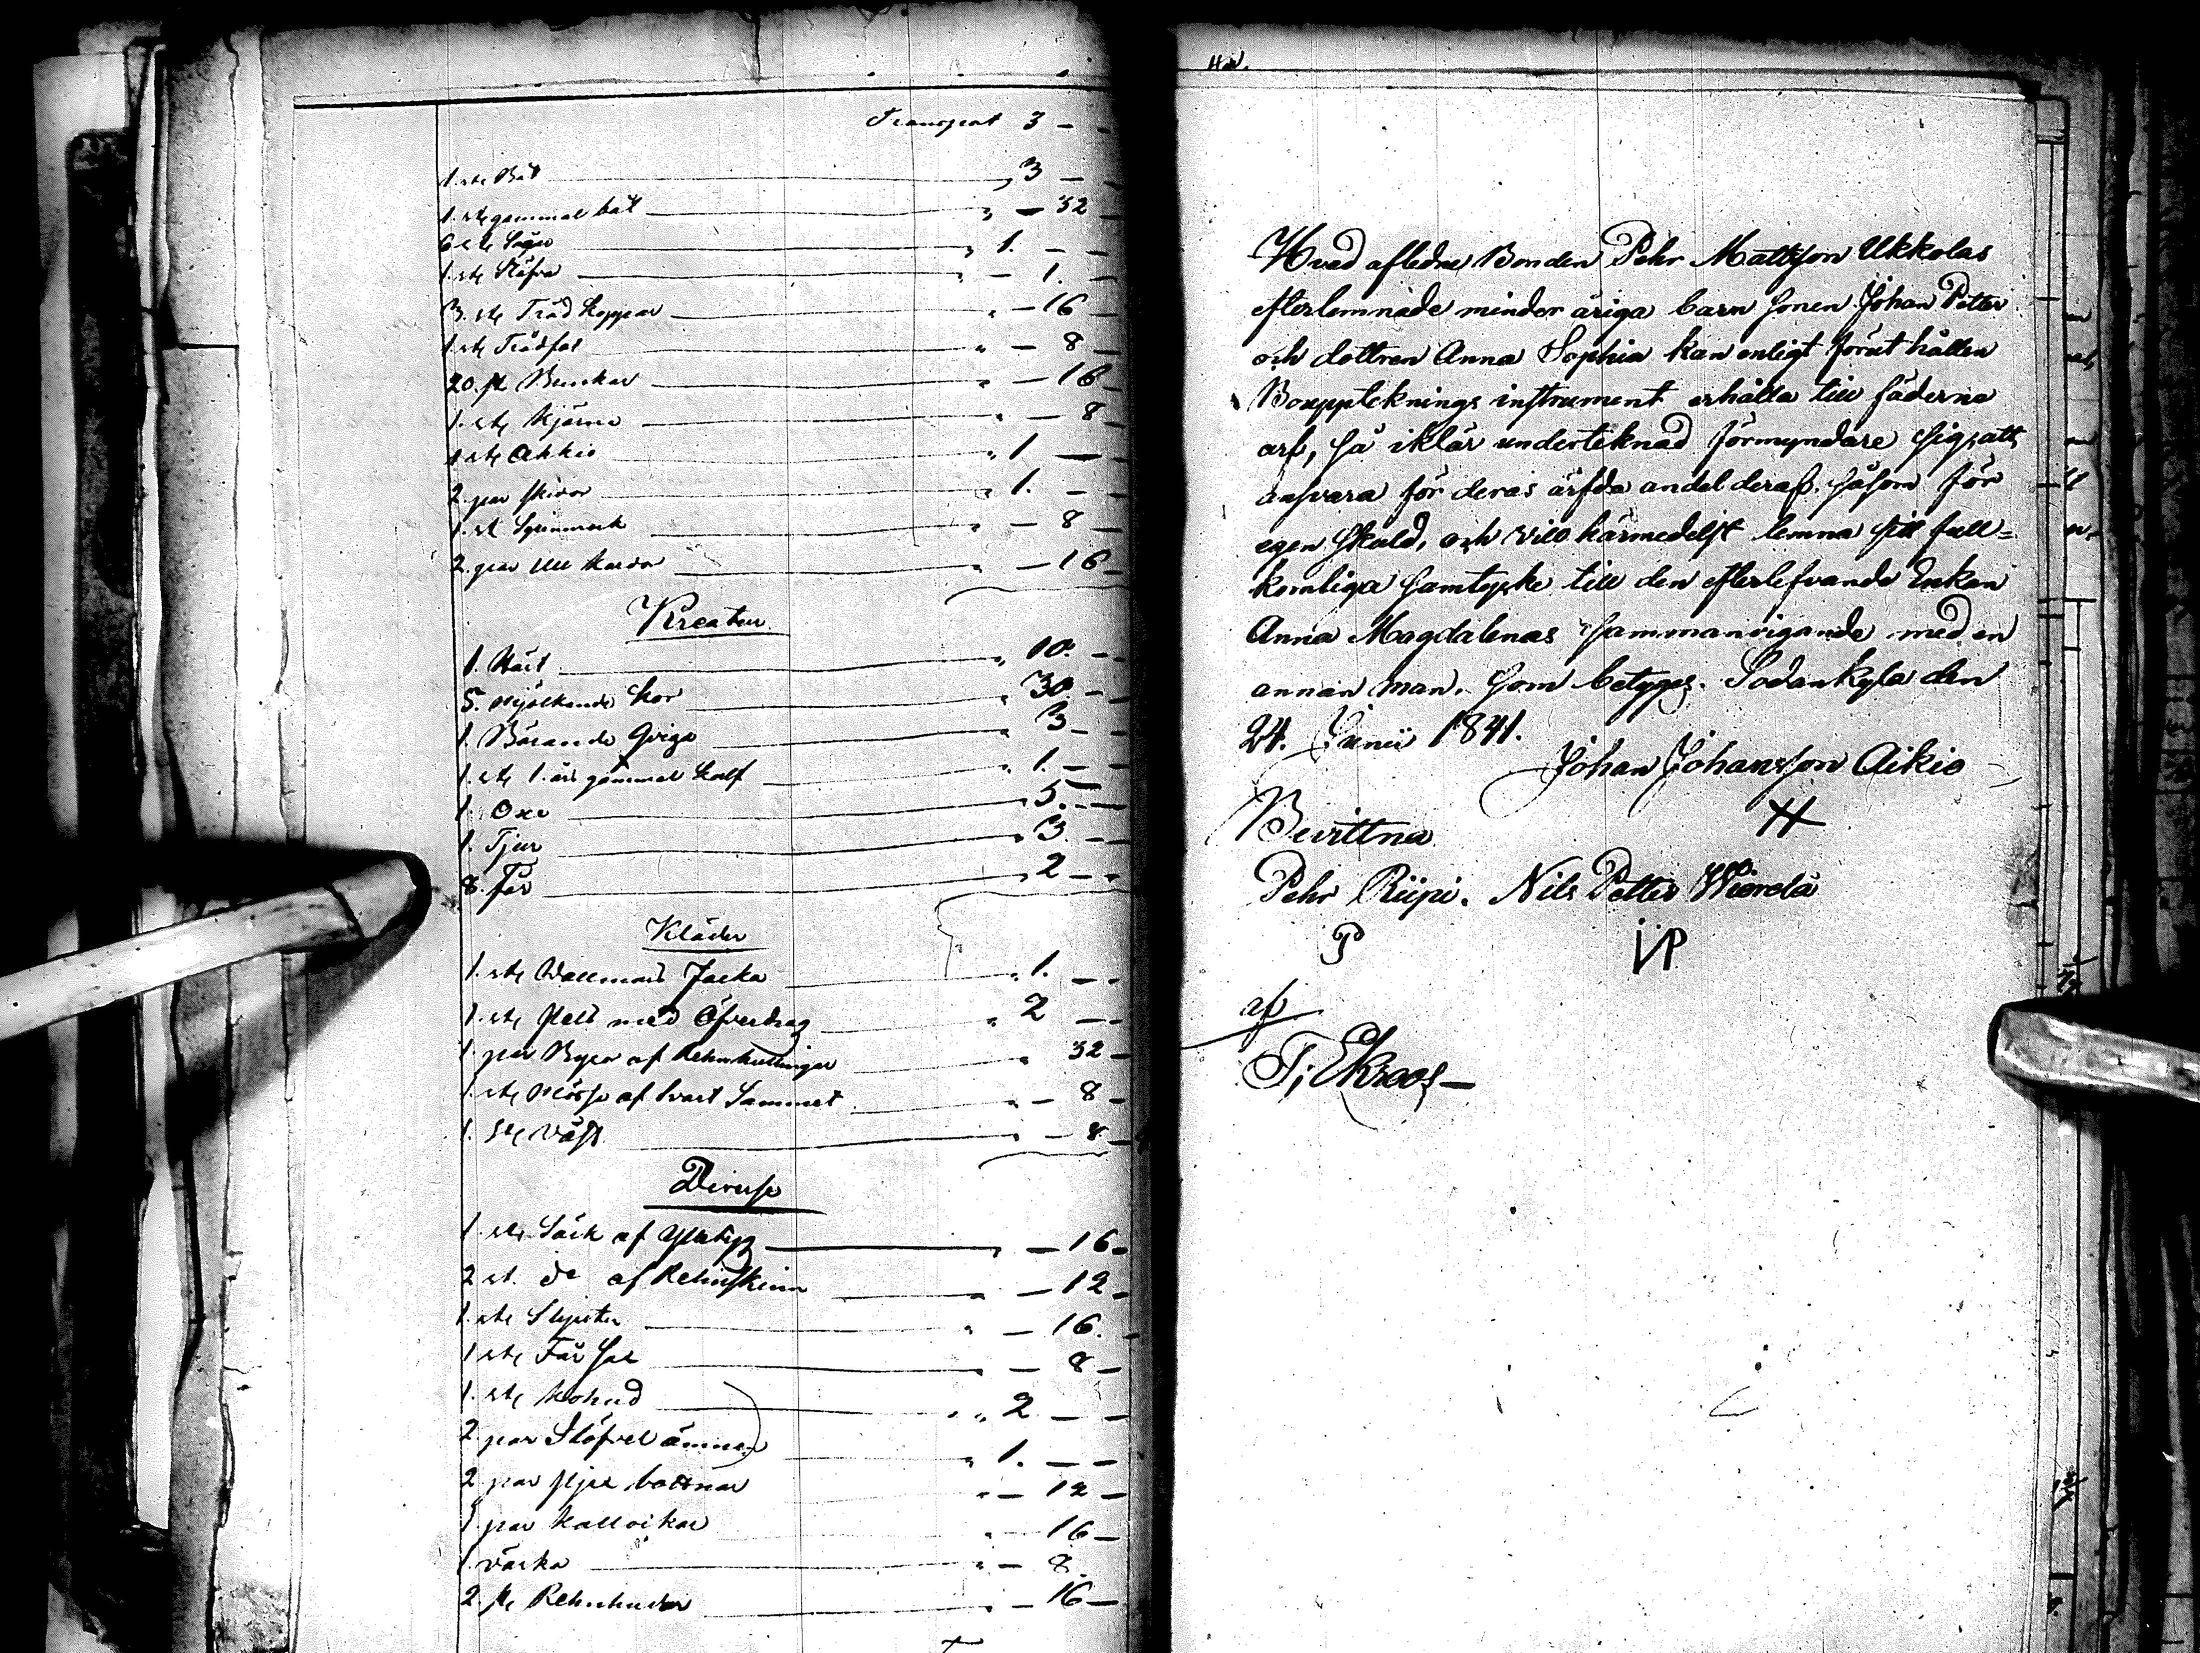 Transport 3 - -
1. st. Båt " 3 - -
1. st gammal båt " - 32 -
6 st. Sågar " 1. - -
1. st. " - 1. -
3. st. Träd Koppar " - 16 -
1. st. Trädfat " - 8 -
20. st Bunkar " - 16 -
1. st. Kjärna " - 8 -
1 st. Akkio " 1 -
2. par skidor " 1. -
1. st Spinnrock " - 8 -
2. par Ull Kardor " - 16 -
Kreatur
1. Häst " 10. - -
5. mjölkande Kor " 30 -
1. Bärande Qviga " 3 -
1. st. 1. års gammal Kalf " 1. -
1. Oxe " 5. - -
1. Tjur " 3 - -
8. Får " 2 - -
Kläder
1. st. Wallmars Jacka " 1. - -
1. st. Päls med Öfverdrag " 2 - -
1 par Byxor af Rehnkallingar " 32 -
1. st. Mössa af Svart Sammet " - 8 -
1. st. Väst " - 8 -
Diverse
1 st. Säck af Ylletyg " - 16 -
2 st. do af Rehnskinn " - 12 -
1. st. " - 16. -
1 st. Får - 8 -
1. st. Kohud " 2 - -
2 par Stöfvel ämnen " 1. - -
2 par bottnar " - 12 -
1 par Kallokar " 16 -
1 väska " - 8.
2. st. Rehnhudar " - 16 -
Hvad aflidne Bonden Pehr Mattsson Ukkolas
efterlemnade minder åriga barn sonen Johan Petter
och dottren Anna Sophia kan enligt förut hållen
Bouppteknings instrument erhålla till fäderne
arf, så iklär underteknad förmyndare sig att
ansvara för deras ärfda andel deraf. såsom för
egen skuld, och vill härmedelst lemna sitt full=
komliga samtycke till den efterlefvande Enkan
Anna Magdalenas sammanvigande med en
annan man. som betyges. Sodankyla den
24. Junii 1841.
Johan Johansson Aikio
Bevittna
Pehr Riipi. Nils Petter
P NP
af
J. Ekroos